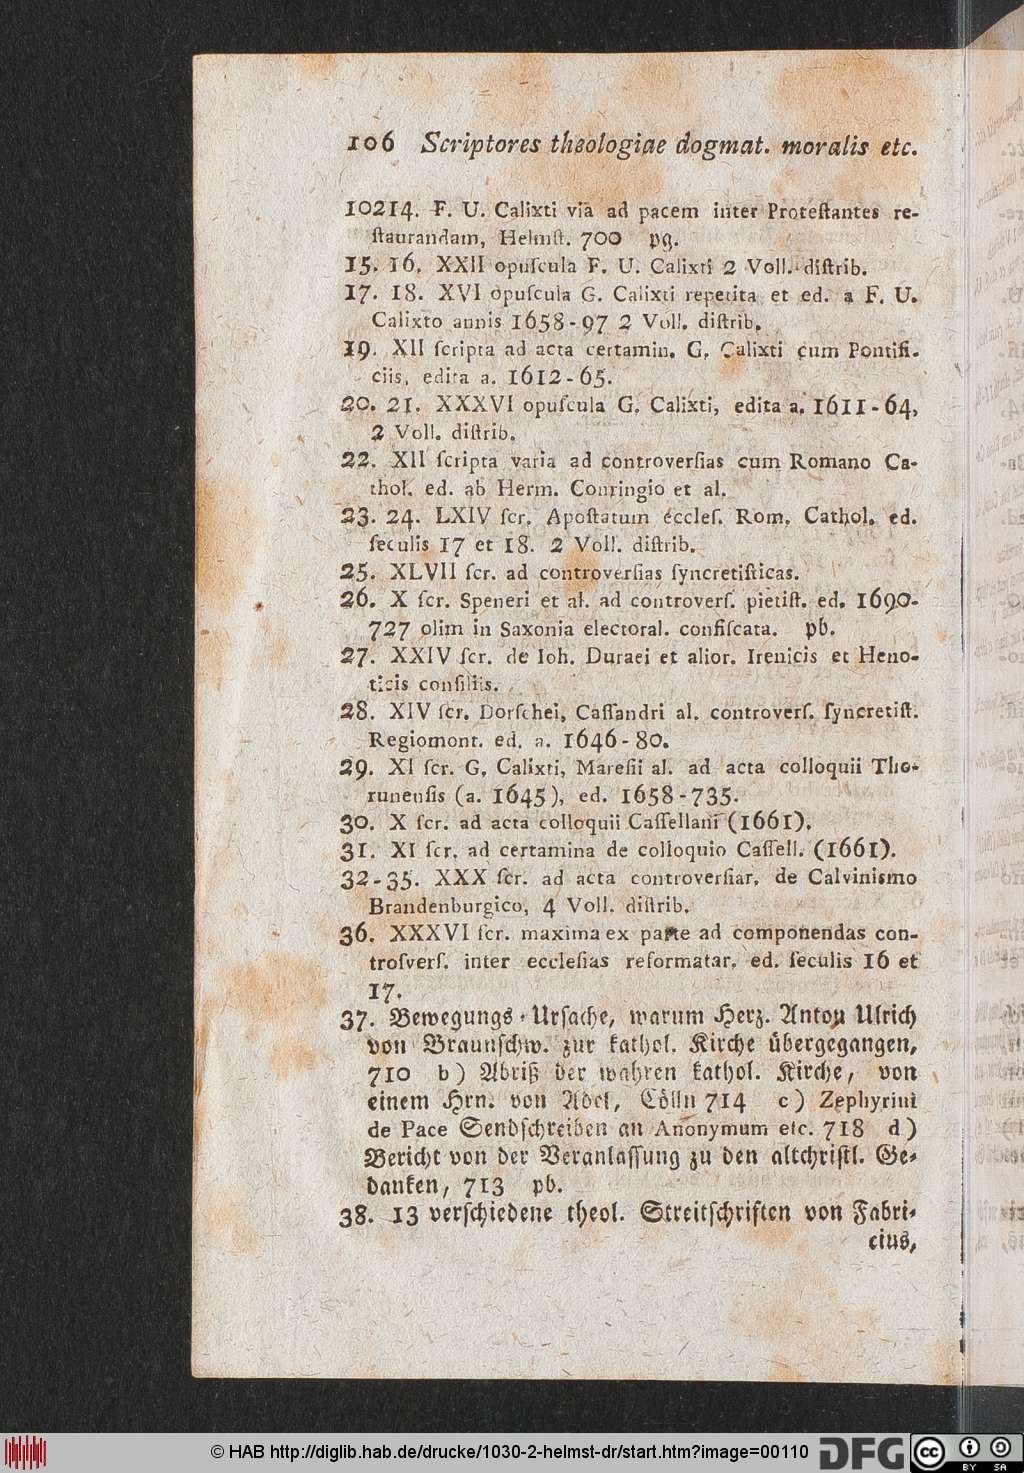 106 Scriptores theologiae dogmat. moralis etc.
10214. F. U. Calixti via ad pacem inter Proteſtantes re-
ſtaurandam, Helmſt. 700 pg.
15. 16. XXII opuſcula F. U. Calixti 2 Voll. diſtrib.
17. 18. XVI opuſcula G. Calixti repetita et ed. a F. U.
Calixto annis 1658-97 2 Voll. diſtrib.
19. XII ſcripta ad acta certamin. G. Calixti cum Pontifi-
ciis, edita a. 1612-65.
20. 21. XXXVI opuſcula G. Calixti, edita a. 1611-64,
2 Voll. diſtrib.
22. XII ſcripta varia ad controverſias cum Romano Ca-
thol. ed. ab Herm. Conringio et al.
23. 24. LXIV ſcr. Apoſtatum eccleſ. Rom. Cathol. ed.
ſeculis 17 et 18. 2 Voll. diſtrib.
25. XLVII ſcr. ad controverſias ſyncretiſticas.
26. X ſcr. Speneri et al. ad controverſ. pietiſt. ed. 1690-
727 olim in Saxonia electoral. confiſcata. pb.
27. XXIV ſcr. de Ioh. Duraei et alior. Irenicis et Heno-
ticis conſiliis.
28. XIV ſcr. Dorſchei, Caſſandri al. controverſ. ſyncretiſt.
Regiomont. ed. a. 1646-80.
29. XI ſcr. G. Calixti, Mareſii al. ad acta colloquii Tho-
runenſis (a. 1645), ed. 1658-735.
30. X ſcr. ad acta colloquii Caſſellani (1661).
31. XI ſcr. ad certamina de colloquio Caſſell. (1661).
32-35. XXX ſcr. ad acta controverſiar. de Calvinismo
Brandenburgico, 4 Voll. diſtrib.
36. XXXVI ſcr. maxima ex parte ad componendas con-
troſverſ. inter eccleſias reformatar. ed. ſeculis 16 et
17.
37. Bewegungs-Urſache, warum Herz. Anton Ulrich
von Braunſchw. zur kathol. Kirche übergegangen,
710 b) Abriß der wahren kathol. Kirche, von
einem Hrn. von Adel, Cölln 714 c) Zephyrini
de Pace Sendſchreiben an Anonymum etc. 718 d)
Bericht von der Veranlaſſung zu den altchriſtl. Ge-
danken, 713 pb.
38. 13 verſchiedene theol. Streitſchriften von Fabri-
cius,
© HAB http://diglib.hab.de/drucke/1030-2-helmst-dr/start.htm?image=00110
DFG
cc BY SA